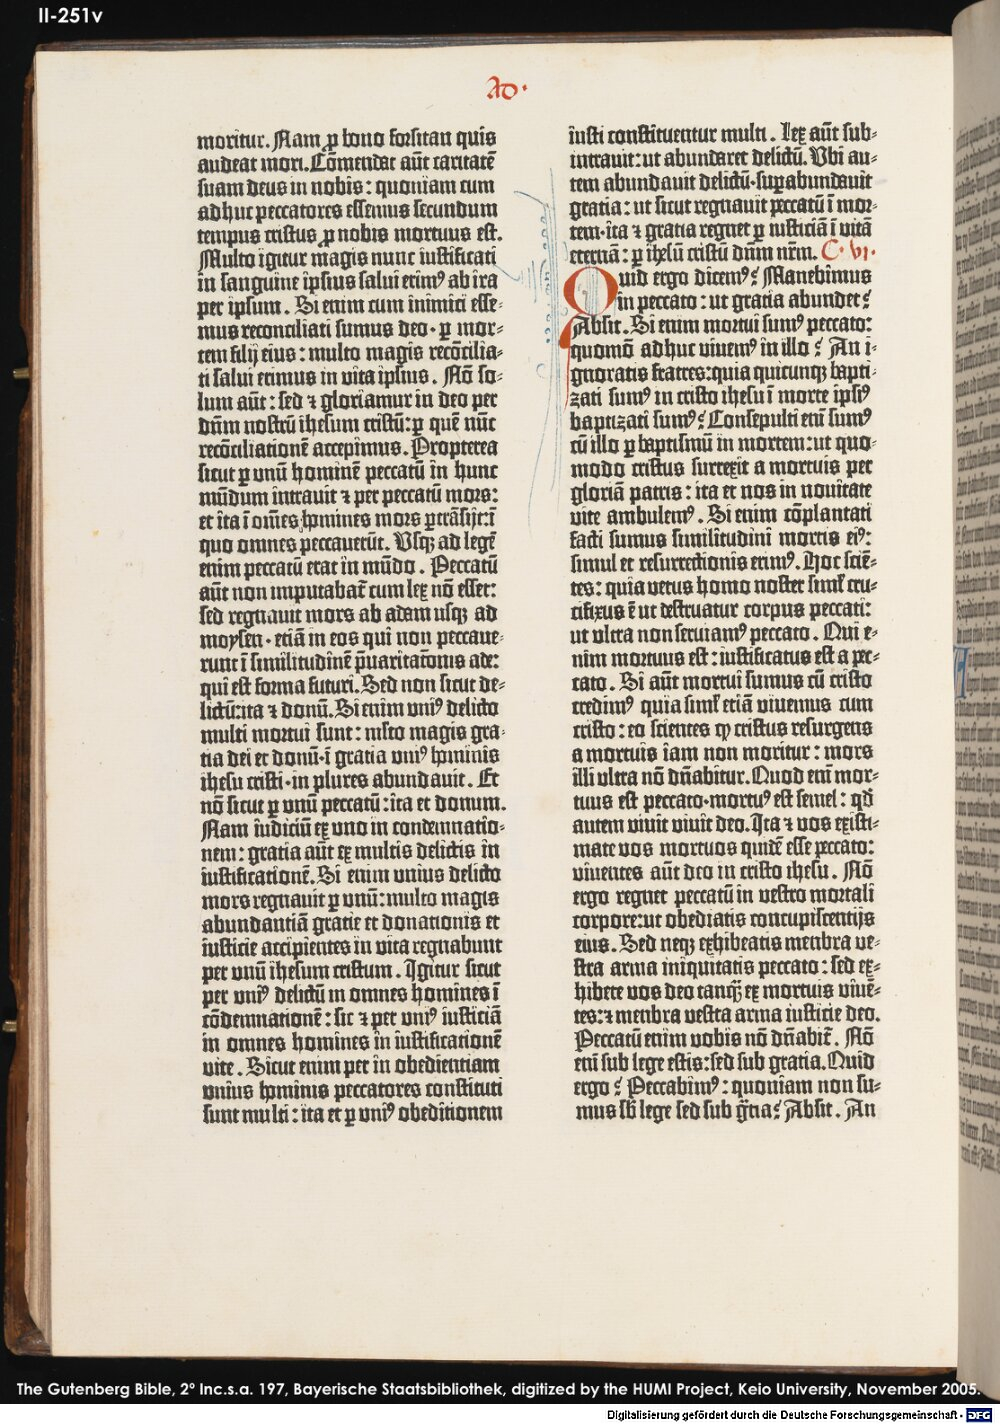 II-251v
Ad·
moritur. Nam ꝓ bono forsitan quis
audeat mori. Cōmendat aūt caritatē
suam deus in nobis : quoniam cum
adhuc peccatores essemus secundum
tempus cristus ꝓ nobis mortuus est.
Multo igitur magis nunc iustificati
in sanguine ipsius salui erimꝰ ab ira
per ipsum . Si enim cum inimici esse-
mus reconciliati sumus deo · ꝑ mor-
tem filij eius : multo magis recōcilia-
ti salui erimus in vita ipsius . Nō so-
lum aūt : sed ⁊ gloriamur in deo per
dn̄m nostrū ihesum cristū : ꝑ quē nūc
recōciliationē accepimus. Propterea
sicut ꝑ vnū hominē peccatū in hunc
mūdum intrauit ⁊ per peccatū mors:
et ita ī om̄es homines mors ꝑtrāsijt: ī
quo omnes peccauerūt. Vsqꝫ ad legē
enim peccatū erat in mūdo . Peccatū
aūt non imputabat᷑ cum lex nō esset:
sed regnauit mors ab adam usqꝫ ad
moysen · etiā in eos qui non peccaue-
runt ī similitudinē p̄uaricat̄onis ade:
qui est forma futuri. Sed non sicut de-
lictū: ita ⁊ donū. Si enim vniꝰ delicto
multi mortui sunt : ml̄to magis gra-
tia dei et donū · ī gratia vniꝰ hominis
ihesu cristi · in plures abundauit . Et
nō sicut ꝑ vnū peccatū : ita et donum.
Nam iudiciū ex vno in condemnatio-
nem : gratia aūt ex multis delictis in
iustificationē. Si enim vnius delicto
mors regnauit ꝑ vnū: multo magis
abundantiā gratie et donationis et
iusticie accipientes in vita regnabunt
per vnū ihesum cristum . Igitur sicut
per vniꝰ delictū in omnes homines ī
cōdemnationē : sic ⁊ per vniꝰ iusticiā
in omnes homines in iustificationē
vite . Sicut enim per in obedientiam
vnius hominis peccatores constituti
sunt multi : ita et ꝑ vniꝰ obeditionem
iusti constituentur multi . Lex aūt sub-
intrauit: ut abundaret delictū. Vbi au-
tem abundauit delictū · suꝑabundauit
gratia : ut sicut regnauit peccatū ī mor-
tem · ita ⁊ gratia regnet ꝑ iusticiā ī vitā
eternā : ꝑ ihesū cristū dn̄m nr̄m. C · vi ·
Quid ergo dicemꝰ? Manebimus
in peccato : ut gratia abundet?
Absit. Si enim mortui sumꝰ peccato:
quomō adhuc viuemꝰ in illo ? An i-
gnoratis fratres: quia quicunqꝫ bapti-
zati sumꝰ in cristo ihesu ī morte ipsiꝰ
baptizati sumꝰ? Consepulti enī sumꝰ
cū illo ꝑ baptismū in mortem: ut quo-
modo cristus surrexit a mortuis per
gloriā patris : ita et nos in nouitate
vite ambulemꝰ . Si enim cōplantati
facti sumus similitudini mortis eiꝰ:
simul et resurrectionis erimꝰ. Hoc sciē-
tes: quia vetus homo noster siml̄ cru-
cifixus ē ut destruatur corpus peccati:
ut vltra non seruiamꝰ peccato . Qui e-
nim mortuus est : iustificatus est a pec-
cato . Si aūt mortui sumus cū cristo
credimꝰ quia siml̄ etiā viuemus cum
cristo : eo scientes ꝙ cristus resurgens
a mortuis iam non moritur : mors
illi vltra nō dn̄abitur. Quod enī mor-
tuus est peccato · mortuꝰ est semel : qd̄
autem viuit viuit deo. Ita ⁊ vos existi-
mate vos mortuos quidē esse peccato:
viuentes aūt deo in cristo ihesu . Nō
ergo regnet peccatū in vestro mortali
corpore: ut obediatis concupiscentijs
eius . Sed neqꝫ exhibeatis menbra ve-
stra arma iniquitatis peccato : sed ex-
hibete vos deo tanq̄ꝫ ex mortuis viuē-
tes: ⁊ menbra vestra arma iusticie deo.
Peccatū enim vobis nō dn̄abit᷑ . Nō
enī sub lege estis: sed sub gratia. Quid
ergo ? Peccabimꝰ : quoniam non su-
mus sb̄ lege sed sub gr̄tia? Absit . An
The Gutenberg Bible, 2° Inc.s.a. 197, Bayerische Staatsbibliothek, digitized by the HUMI Project, Keio University, November 2005.
Digitalisierung gefördert durch die Deutsche Forschungsgemeinschaft - DFG